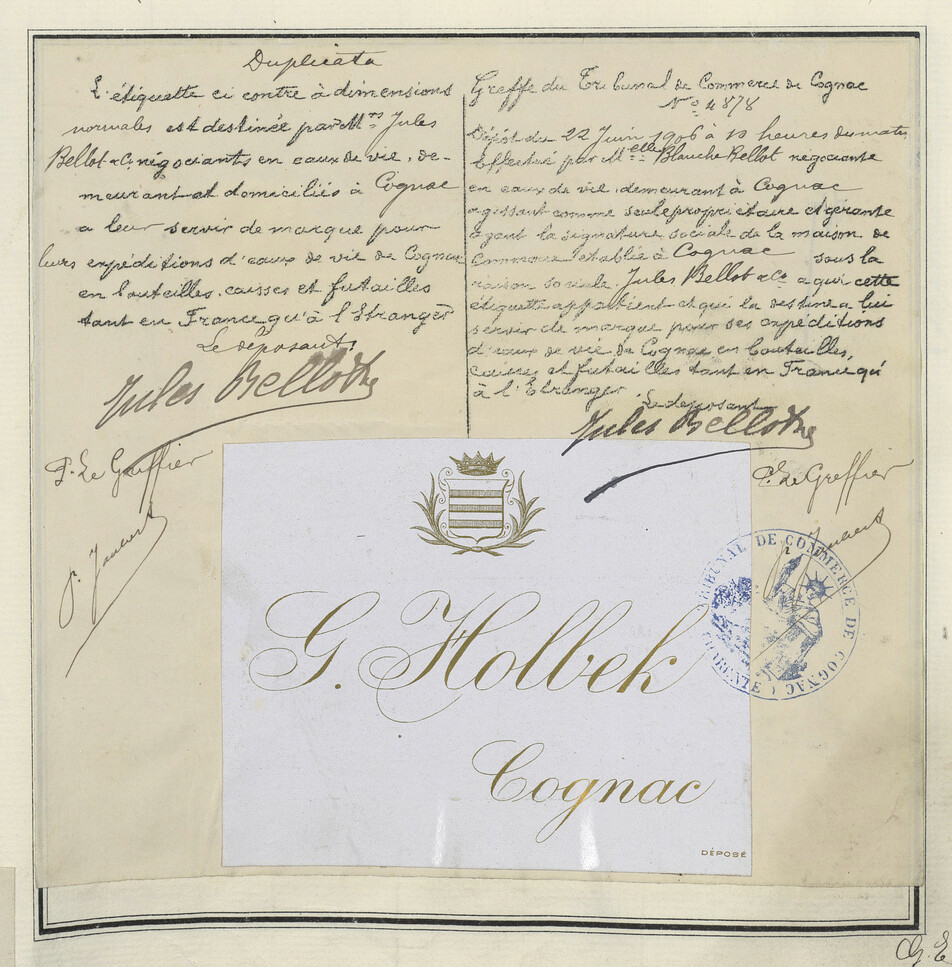 Duplicata
L'étiquette ci contre à dimensions
normales est destinée par M.rs Jules
Bellot & Co négociants en eaux de vie, de-
meurant et domiciliés à Cognac
a leur servir de marque pour
leurs expéditions d'eaux de vie de Cognac
en bouteilles, caisses et futailles
tant en France qu'à l'Etranger
Le déposant.
Jules Bellot & Co
P. Le Greffier
Greffe du Tribunal de Commerce de Cognac
No 4878
Dépôt du 22 Juin 1906 à 10 heures du matin
Effectué par Melle Blanche Bellot négociante
en eaux de vie, demeurant à Cognac
agissant comme seule propriétaire et gérante
ayant la signature sociale de la maison de
Commerce établie à Cognac sous la
raison sociale Jules Bellot & Co a qui cette
étiquette appartient et qui la destine a lui
servir de marque pour ses expéditions
d'eaux de vie de Cognac en bouteilles,
caisses et futailles tant en France qu'
à l'Etranger
Le déposant
Jules Bellot & Co
P. Le Greffier
TRIBUNAL DE COMMERCE DE COGNAC
CHARENTE
G. Holbek
Cognac
DÉPOSÉ
G. E